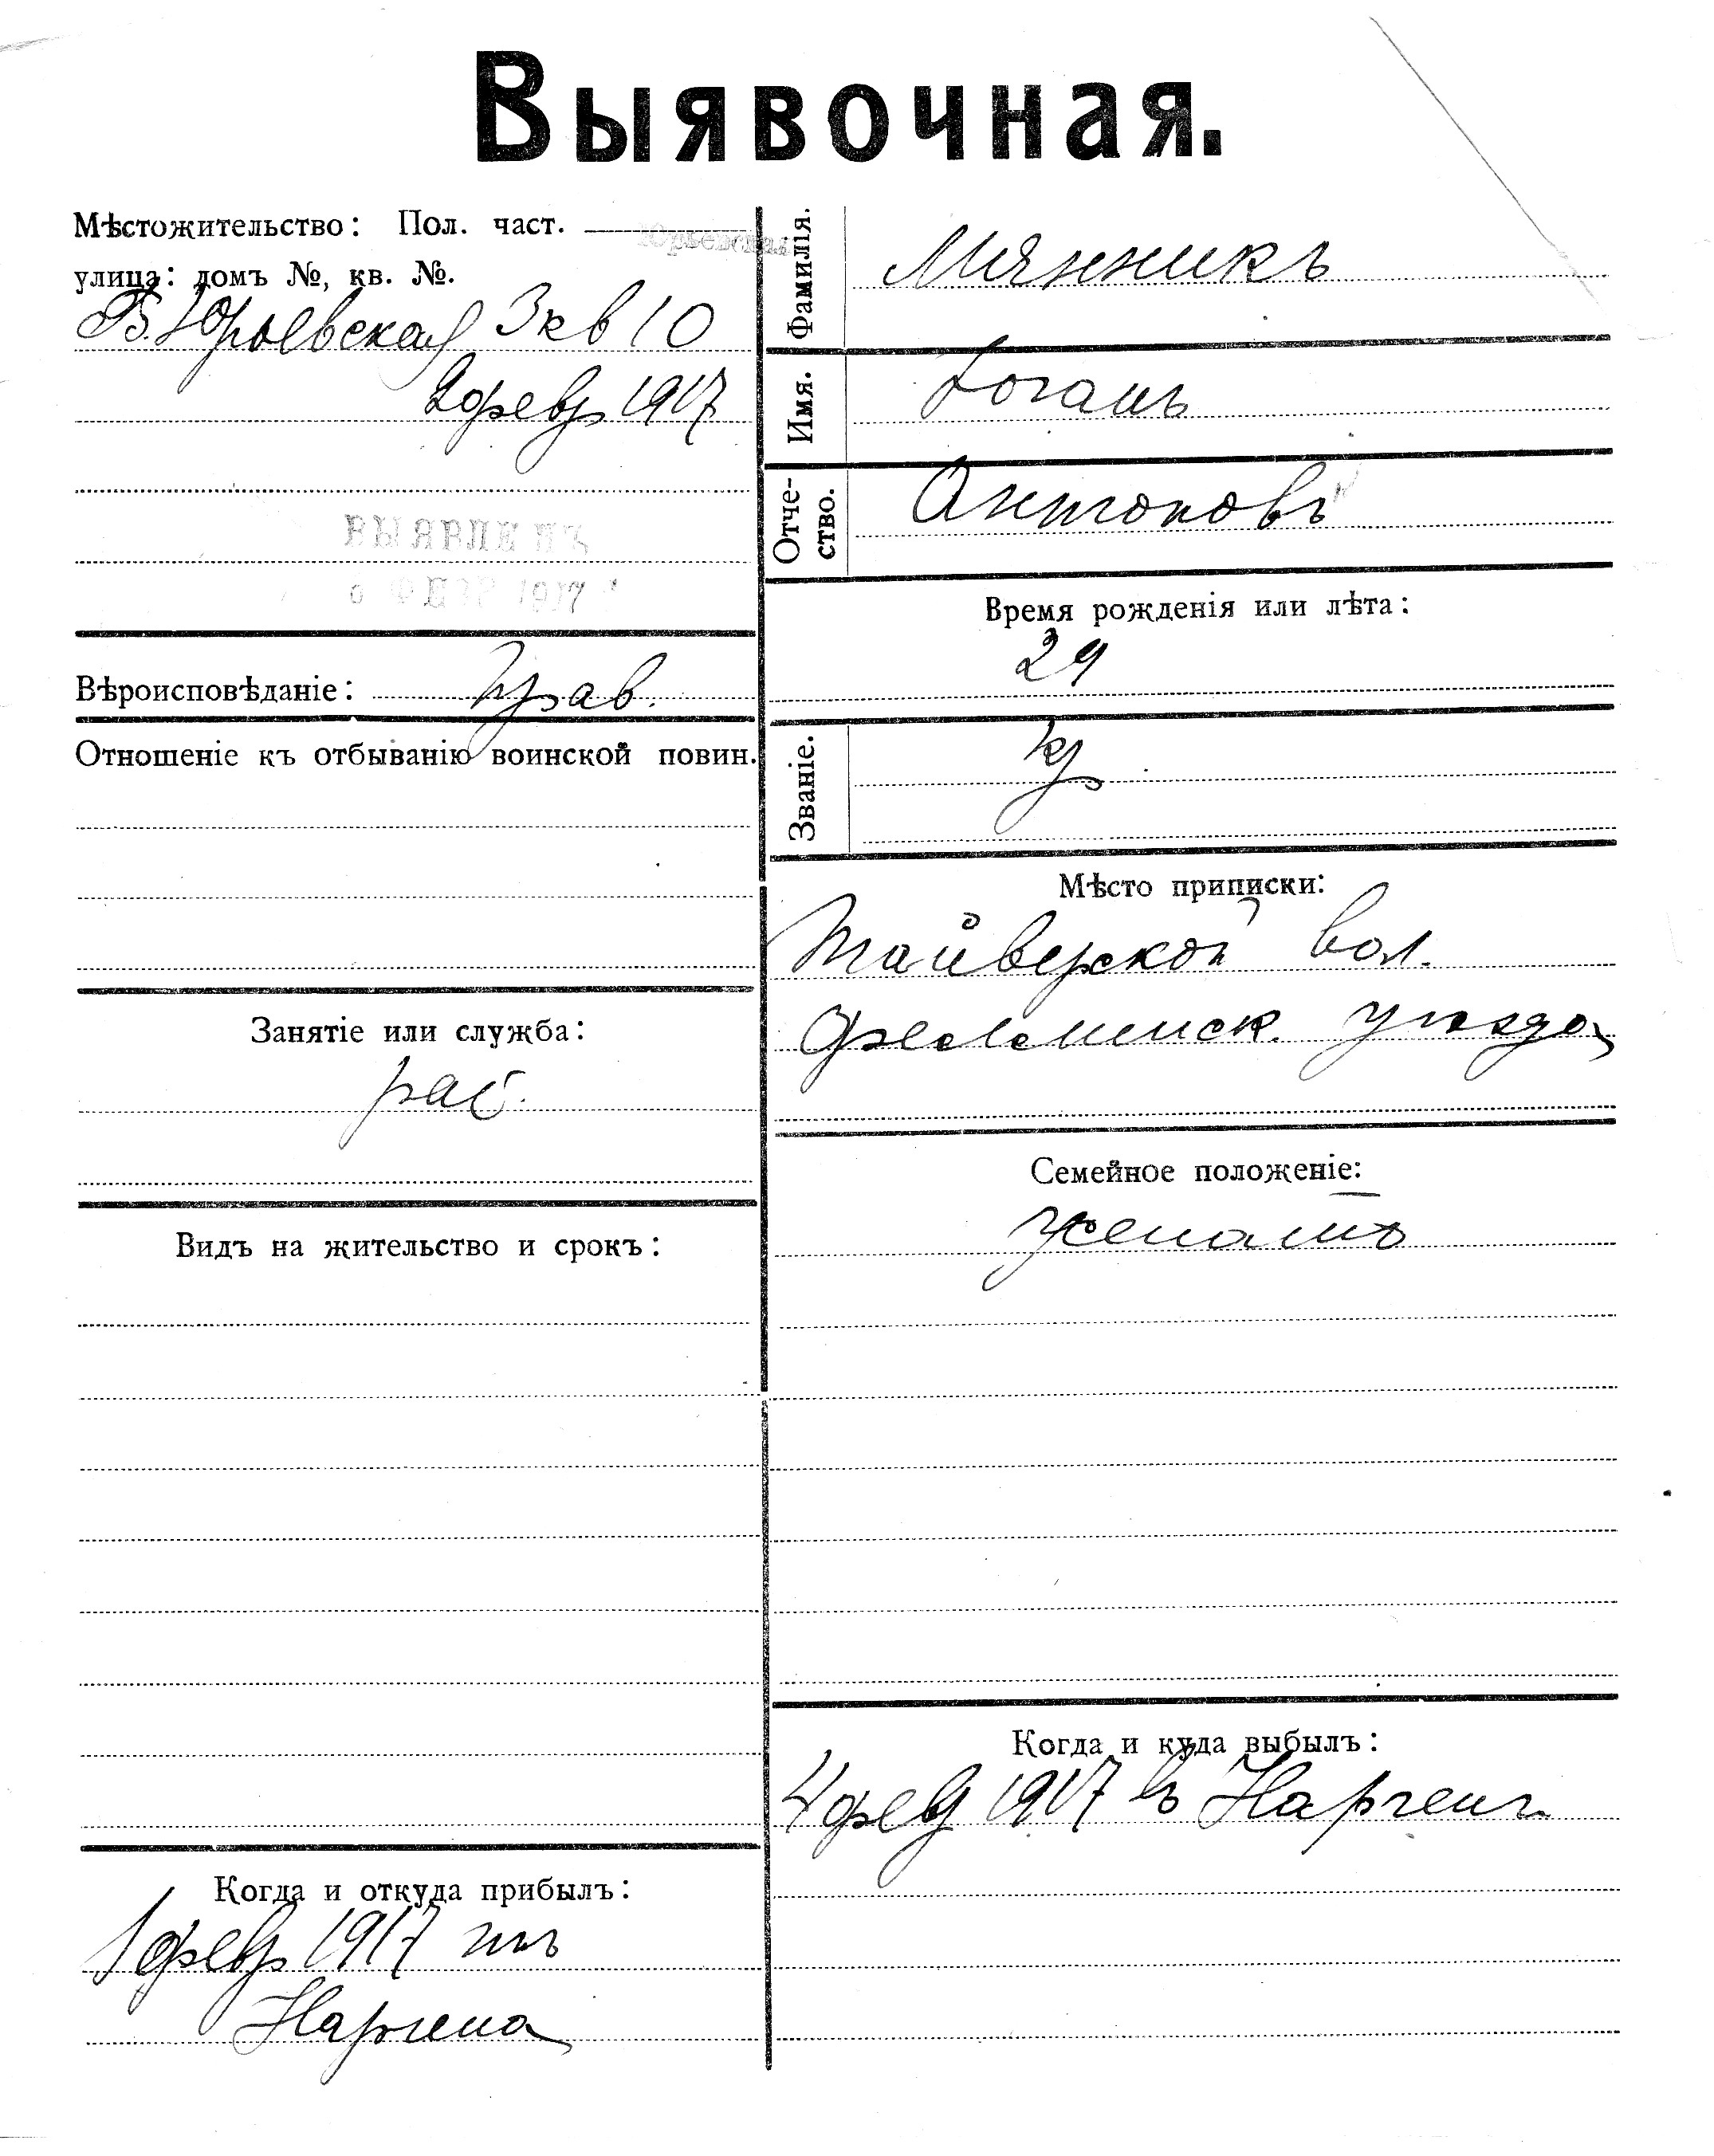 Выявочная.
Мѣстожительство: Пол. част. Юрьевская
улица: домъ №, кв. №.
Б. Юрьевская 3 кв 10
2 февр 1917
ВЫЯВЛЕНЪ
ФЕВР 1917
Вѣроисповѣданіе: прав.
Отношеніе къ отбыванію воинской повин.
Занятіе или служба:
раб.
Видъ на жительство и срокъ:
Когда и откуда прибылъ:
1 февр 1917 изъ
Наргена
Фамилія. Мянникъ
Имя. Іоганъ
Отче-
ство. Антоновъ
Время рожденія или лѣта:
29
Званіе. кр
Мѣсто приписки:
Тайверской вол.
Феллинск. уѣзда
Семейное положеніе:
женатъ
Когда и куда выбылъ:
4 фев 1917 въ Наргенъ